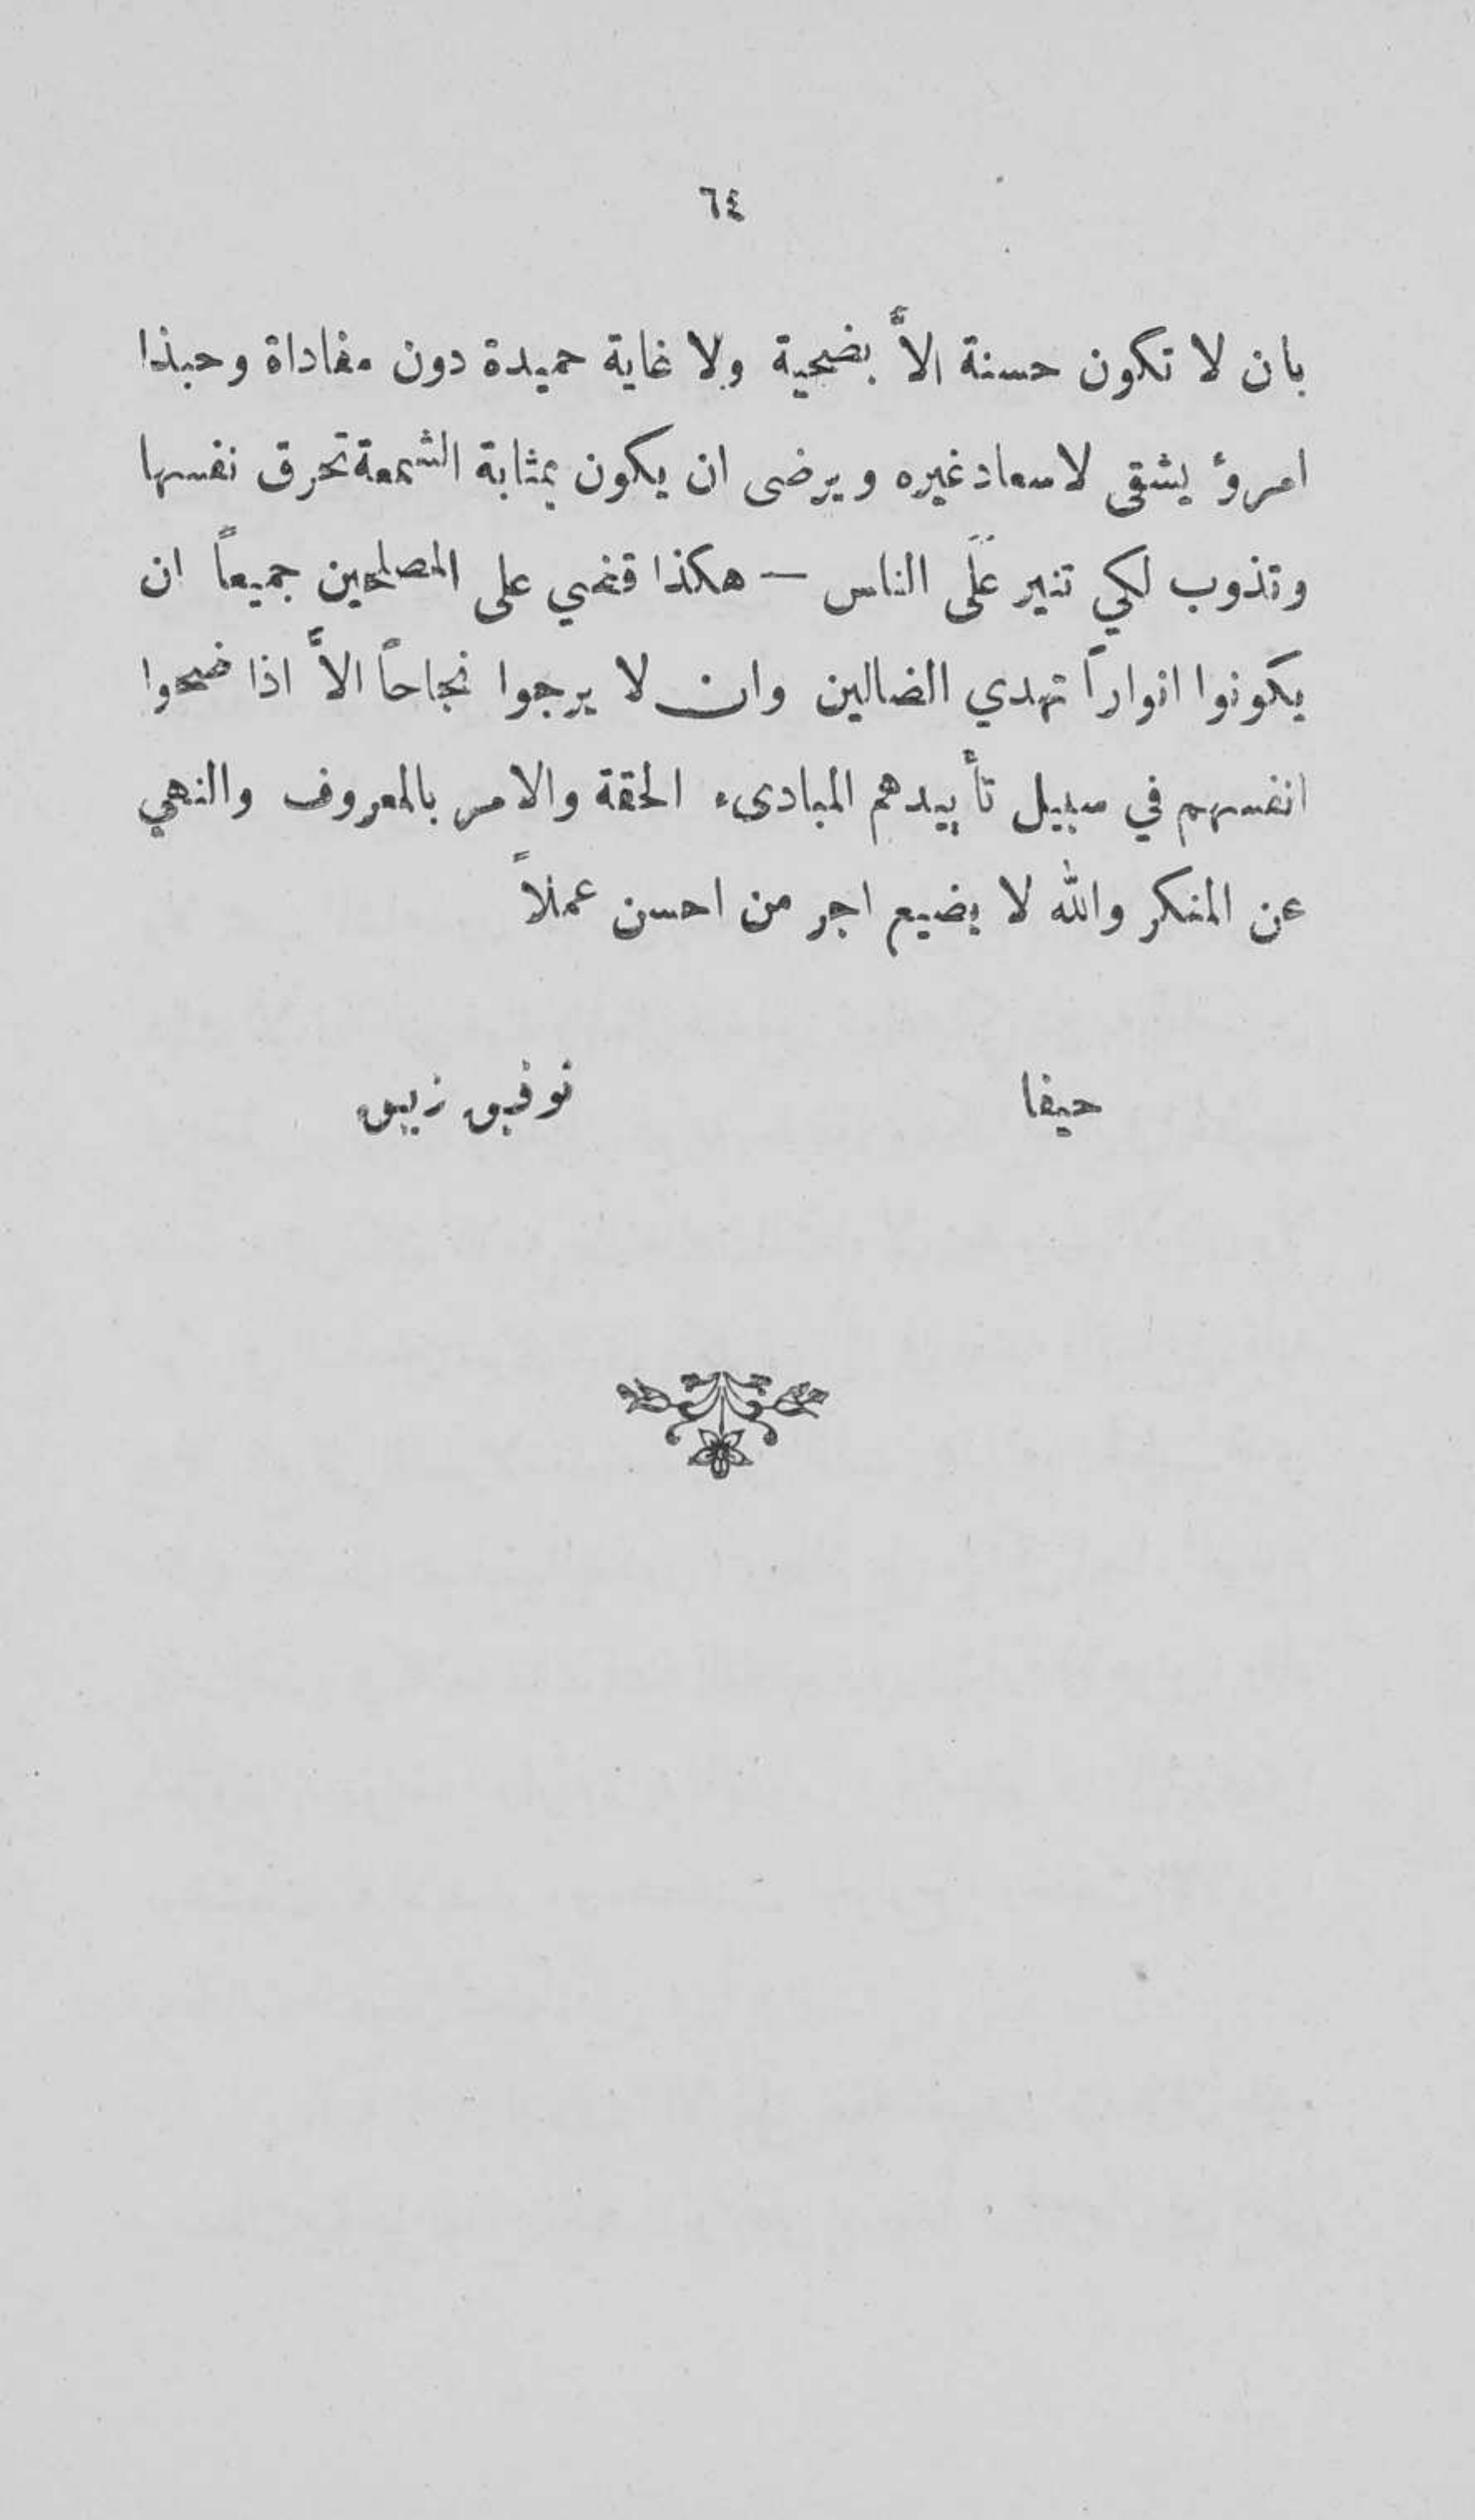 ٦٤
بان لا تكون حسنة الاَّ بضحية ولا غاية حميدة دون مفاداة وحبذا
امرؤ يشقى لاسعاد غيره ويرضى ان يكون بمثابة الشمعة تحرق نفسها
وتذوب لكي تنير عَلَى الناس – هكذا قضي على المصلحين جميعاً ان
يكونوا انواراً تهدي الضالين وان لا يرجوا نجاحاً الاَّ اذا ضحوا
انفسهم في سبيل تأييدهم المبادىء الحقة والامر بالمعروف والنهي
عن المنكر والله لا يضيع اجر من احسن عملاً
حيفا توفيق زيبق